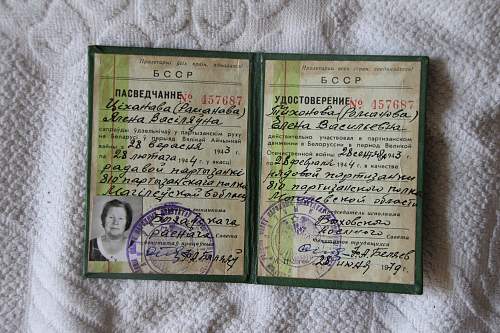 Пролетарыі ўсіх краін, яднайцеся!
БССР
ПАСВЕДЧАННЕ № 457687
Ціханава (Раманава)
Алена Васілеўна
сапраўды ўдзельнічаў у партызанскім руху
ў Беларусі ў перыяд Вялікай Айчыннай
вайны з 28 верасня 1943 г.
па 28 лютага 1944 г. у якасці
радавой партызанкі
810 партызанскага палка
Магілеўскай вобласці
раённага Савета
дэпутатаў працоўных
Пролетарии всех стран, соединяйтесь!
БССР
УДОСТОВЕРЕНИЕ № 457687
Тихонова (Романова)
Елена Васильевна
действительно участвовал в партизанском
движении в Белоруссии в период Великой
Отечественной войны с 28 сент 1943 г.
по 28 февраля 1944 г. в качестве
рядовой партизанки
810 партизанского полка
Могилевской области
Председатель исполкома
Быховского
районного Совета
депутатов трудящихся
28 1979 г.